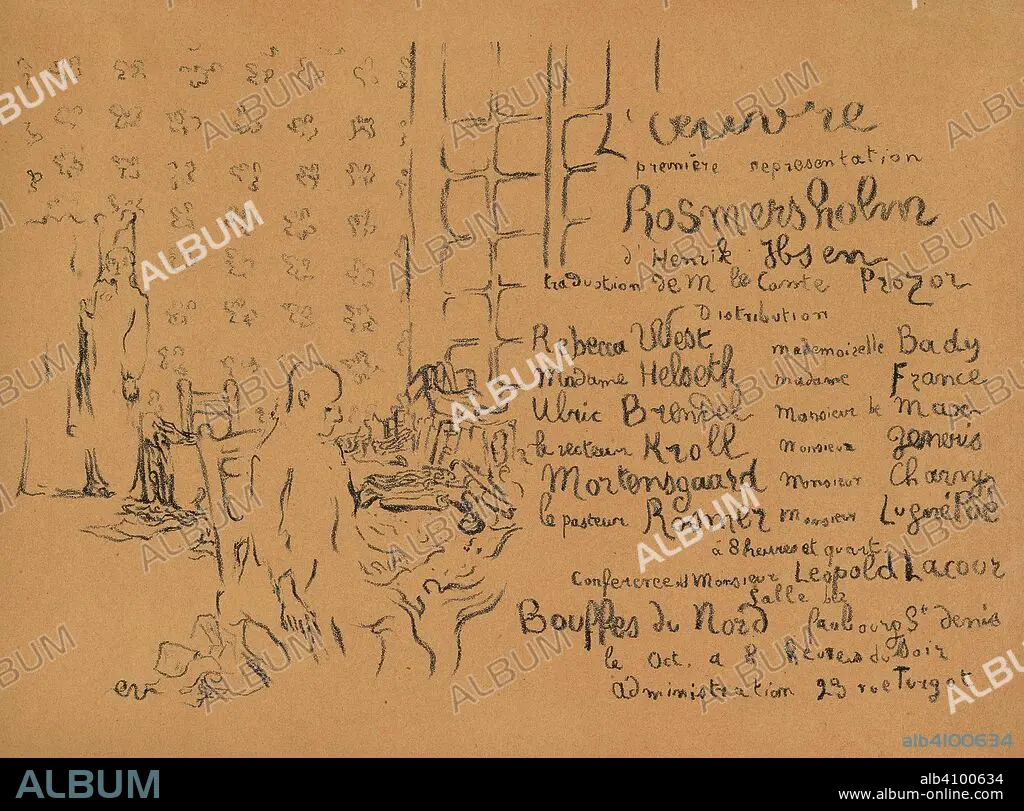 L'œuvre
première representation
Rosmersholm
d'Henrik Ibsen
traduction de M le Comte Prozor
Distribution
Rebecca West mademoizelle Bady
Madame Helseth madame France
Ulric Brendel Monsieur de Max
le recteur Kroll Monsieur
Mortensgaard Monsieur Charny
le pasteur Rosmer Monsieur Lugné Poé
à 8 heures et quart
Conference Monsieur Léopold Lacour
Salle des
Bouffes du Nord faubourg St denis
le Oct. a 8 heures du Soir
administration 23 rue Turgot
ev
ALBUM
alb4100634
ALBUM
alb4100634
www.album-online.com